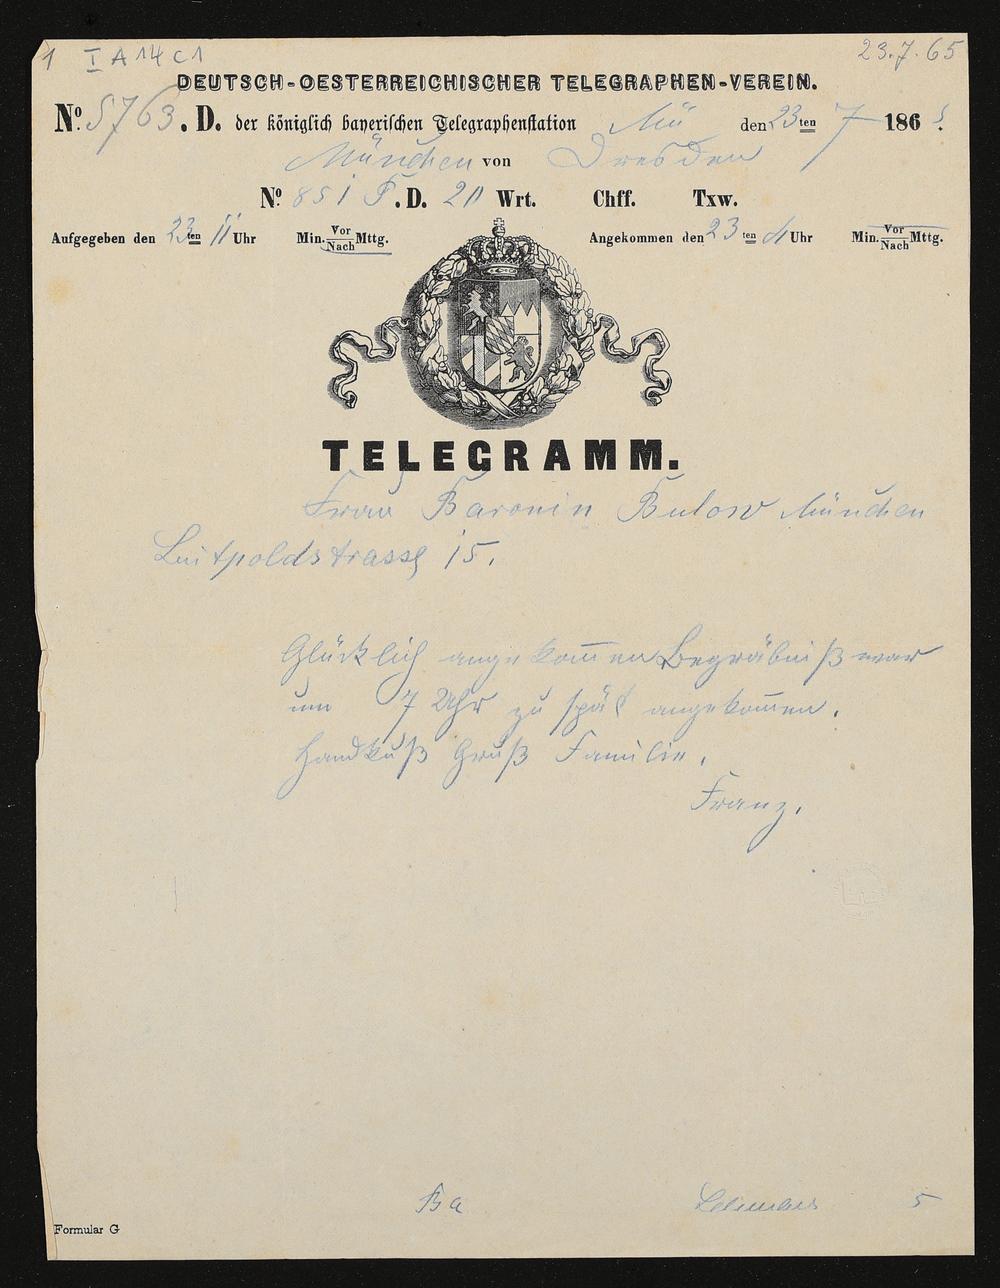 1 I A 14 C 1 23.7.65
DEUTSCH-OESTERREICHISCHER TELEGRAPHEN-VEREIN.
No. 5763. D. der königlich bayerischen Telegraphenstation Mü den 23ten 7 1865.
München von Dresden
No. 851 F. D. 20 Wrt. Chff. Txw.
Aufgegeben den 23ten 11 Uhr Min. Vor/Nach Mttg. Angekommen den 23ten Uhr Min. Vor/Nach Mttg.
TELEGRAMM.
Frau Baronin Bulow München
Luitpoldstrasse 15.
Glücklich angekom̅en Begräbniß war
um 7 Uhr zu spät angekom̅en.
Handkuß Gruß Familie.
Franz.
Ba 5
Formular G